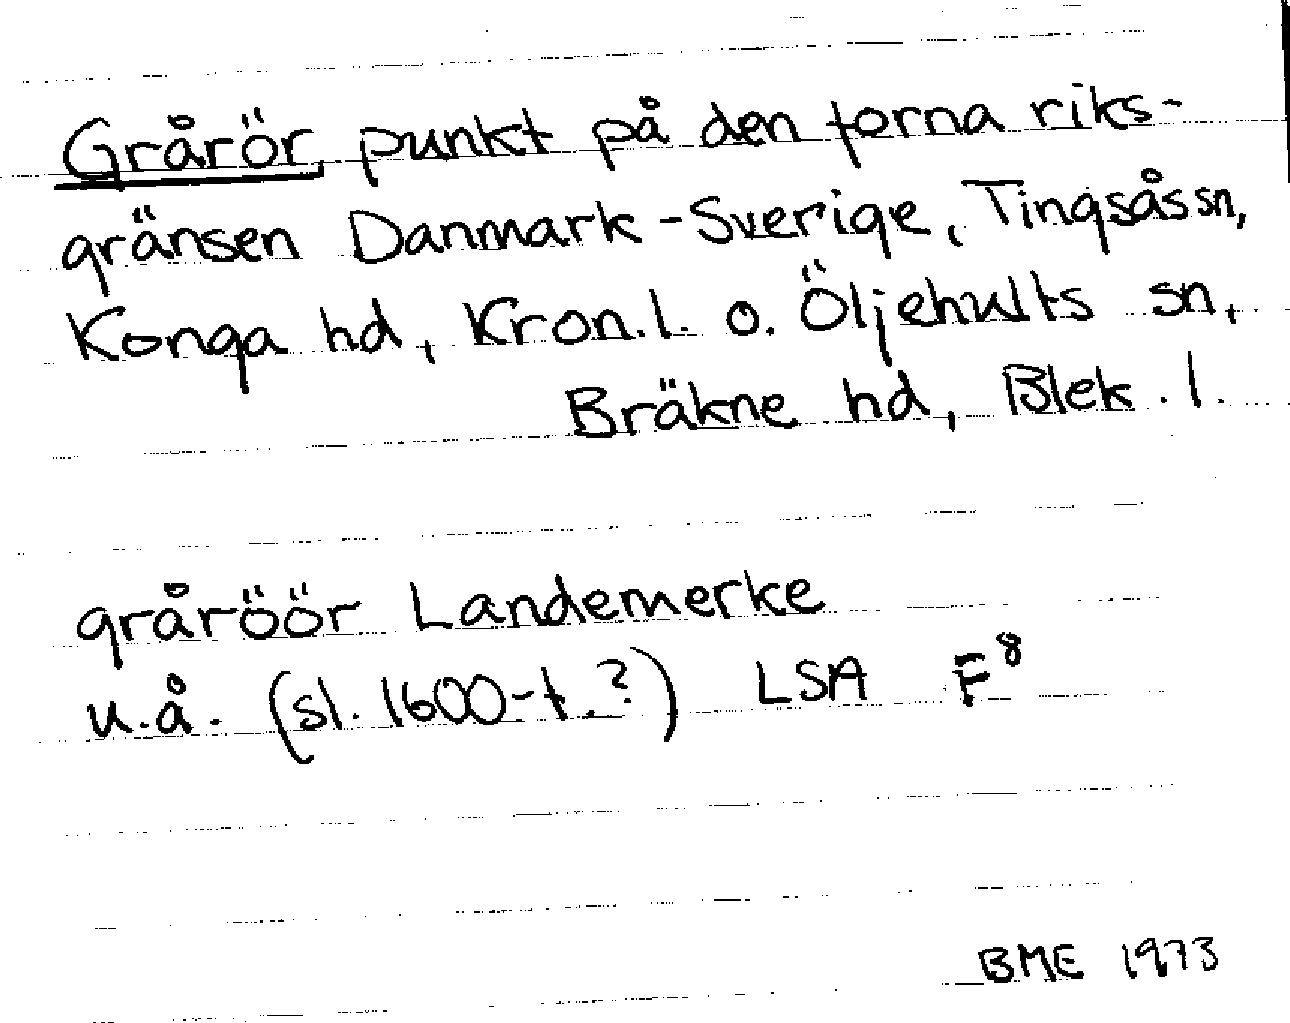 Grårör, punkt på den forna riks-
gränsen Danmark-Sverige, Tingsås sn,
Konga hd, Kron.l. o. Öljehults sn,
Bräkne hd, Blek.l.
gråröör Landemerke
u.å. (sl. 1600-t.?) LSA F⁸
BME 1973